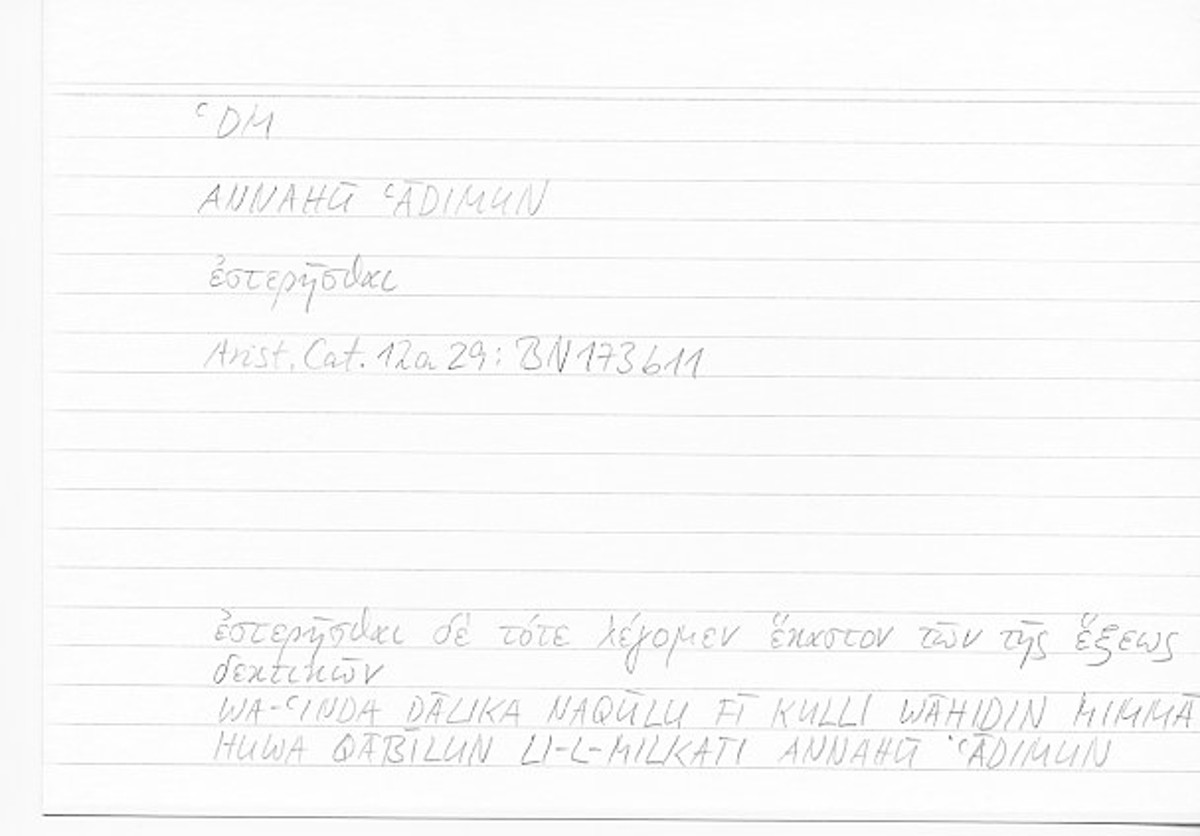 ʿDM
ANNAHŪ ʿĀDIMUN
ἐστερῆσθαι
Arist. Cat. 12a 29: BN 173b11
ἐστερῆσθαι δὲ τότε λέγομεν ἕκαστον τῶν τῆς ἕξεως
δεκτικῶν
WA-ʿINDA DĀLIKA NAQŪLU FĪ KULLI WĀHIDIN MIMMĀ
HUWA QĀBILUN LI-L-MILKATI ANNAHŪ ʿĀDIMUN